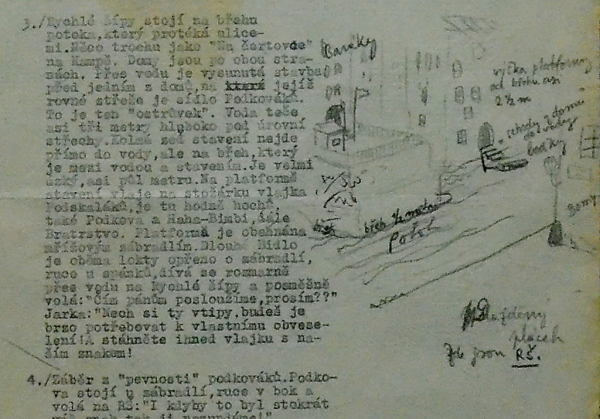 3./Rychlé šípy stojí na břehu
potoka,který protéká ulice-
mi.Něco trochu jako "Na čertovce"
na Kampě. Domy jsou po obou stra-
nách. Přes vodu je vysunutá stavba
před jedním z domů,na která jejíž
rovné střeše je sídlo Podkováků.
To je ten "ostrůvek". Voda teče
asi tři metry hluboko pod úrovní
střechy.Kolmá zeď stavení nejde
přímo do vody,ale na břeh,který
je mezi vodou a stavením.Je velmi
úzký,asi půl metru.Na platformě
stavení vlaje na stožárku vlajka
Podskaláků,je tu hodně hochů,
také Podkova a Haha-Bimbi,dále
Bratrstvo. Platforma je obehnána
mřížovým zábradlím.Dlouhé Bidlo
je oběma lokty opřeno o zábradlí,
ruce u spánků,dívá se rozmarně
přes vodu na Rychlé šípy a posměšně
volá:"Čím pánům posloužíme,prosím??"
Jarka:"Nech si ty vtipy,budeš je
brzo potřebovat k vlastnímu obvese-
lení!A stáhněte ihned vlajku s na-
ším znakem!
4./Záběr z "pevnosti" podkováků.Podko-
va stojí u zábradlí,ruce v bok a
volá na RŠ:"I kdyby to byl stokrát
Baráky
výška platformy
od břehu asi
2 ½ m
schody z domu
až k vodě
břeh ½ metru
Potok
Domy
plácek
Zde jsou RŠ.